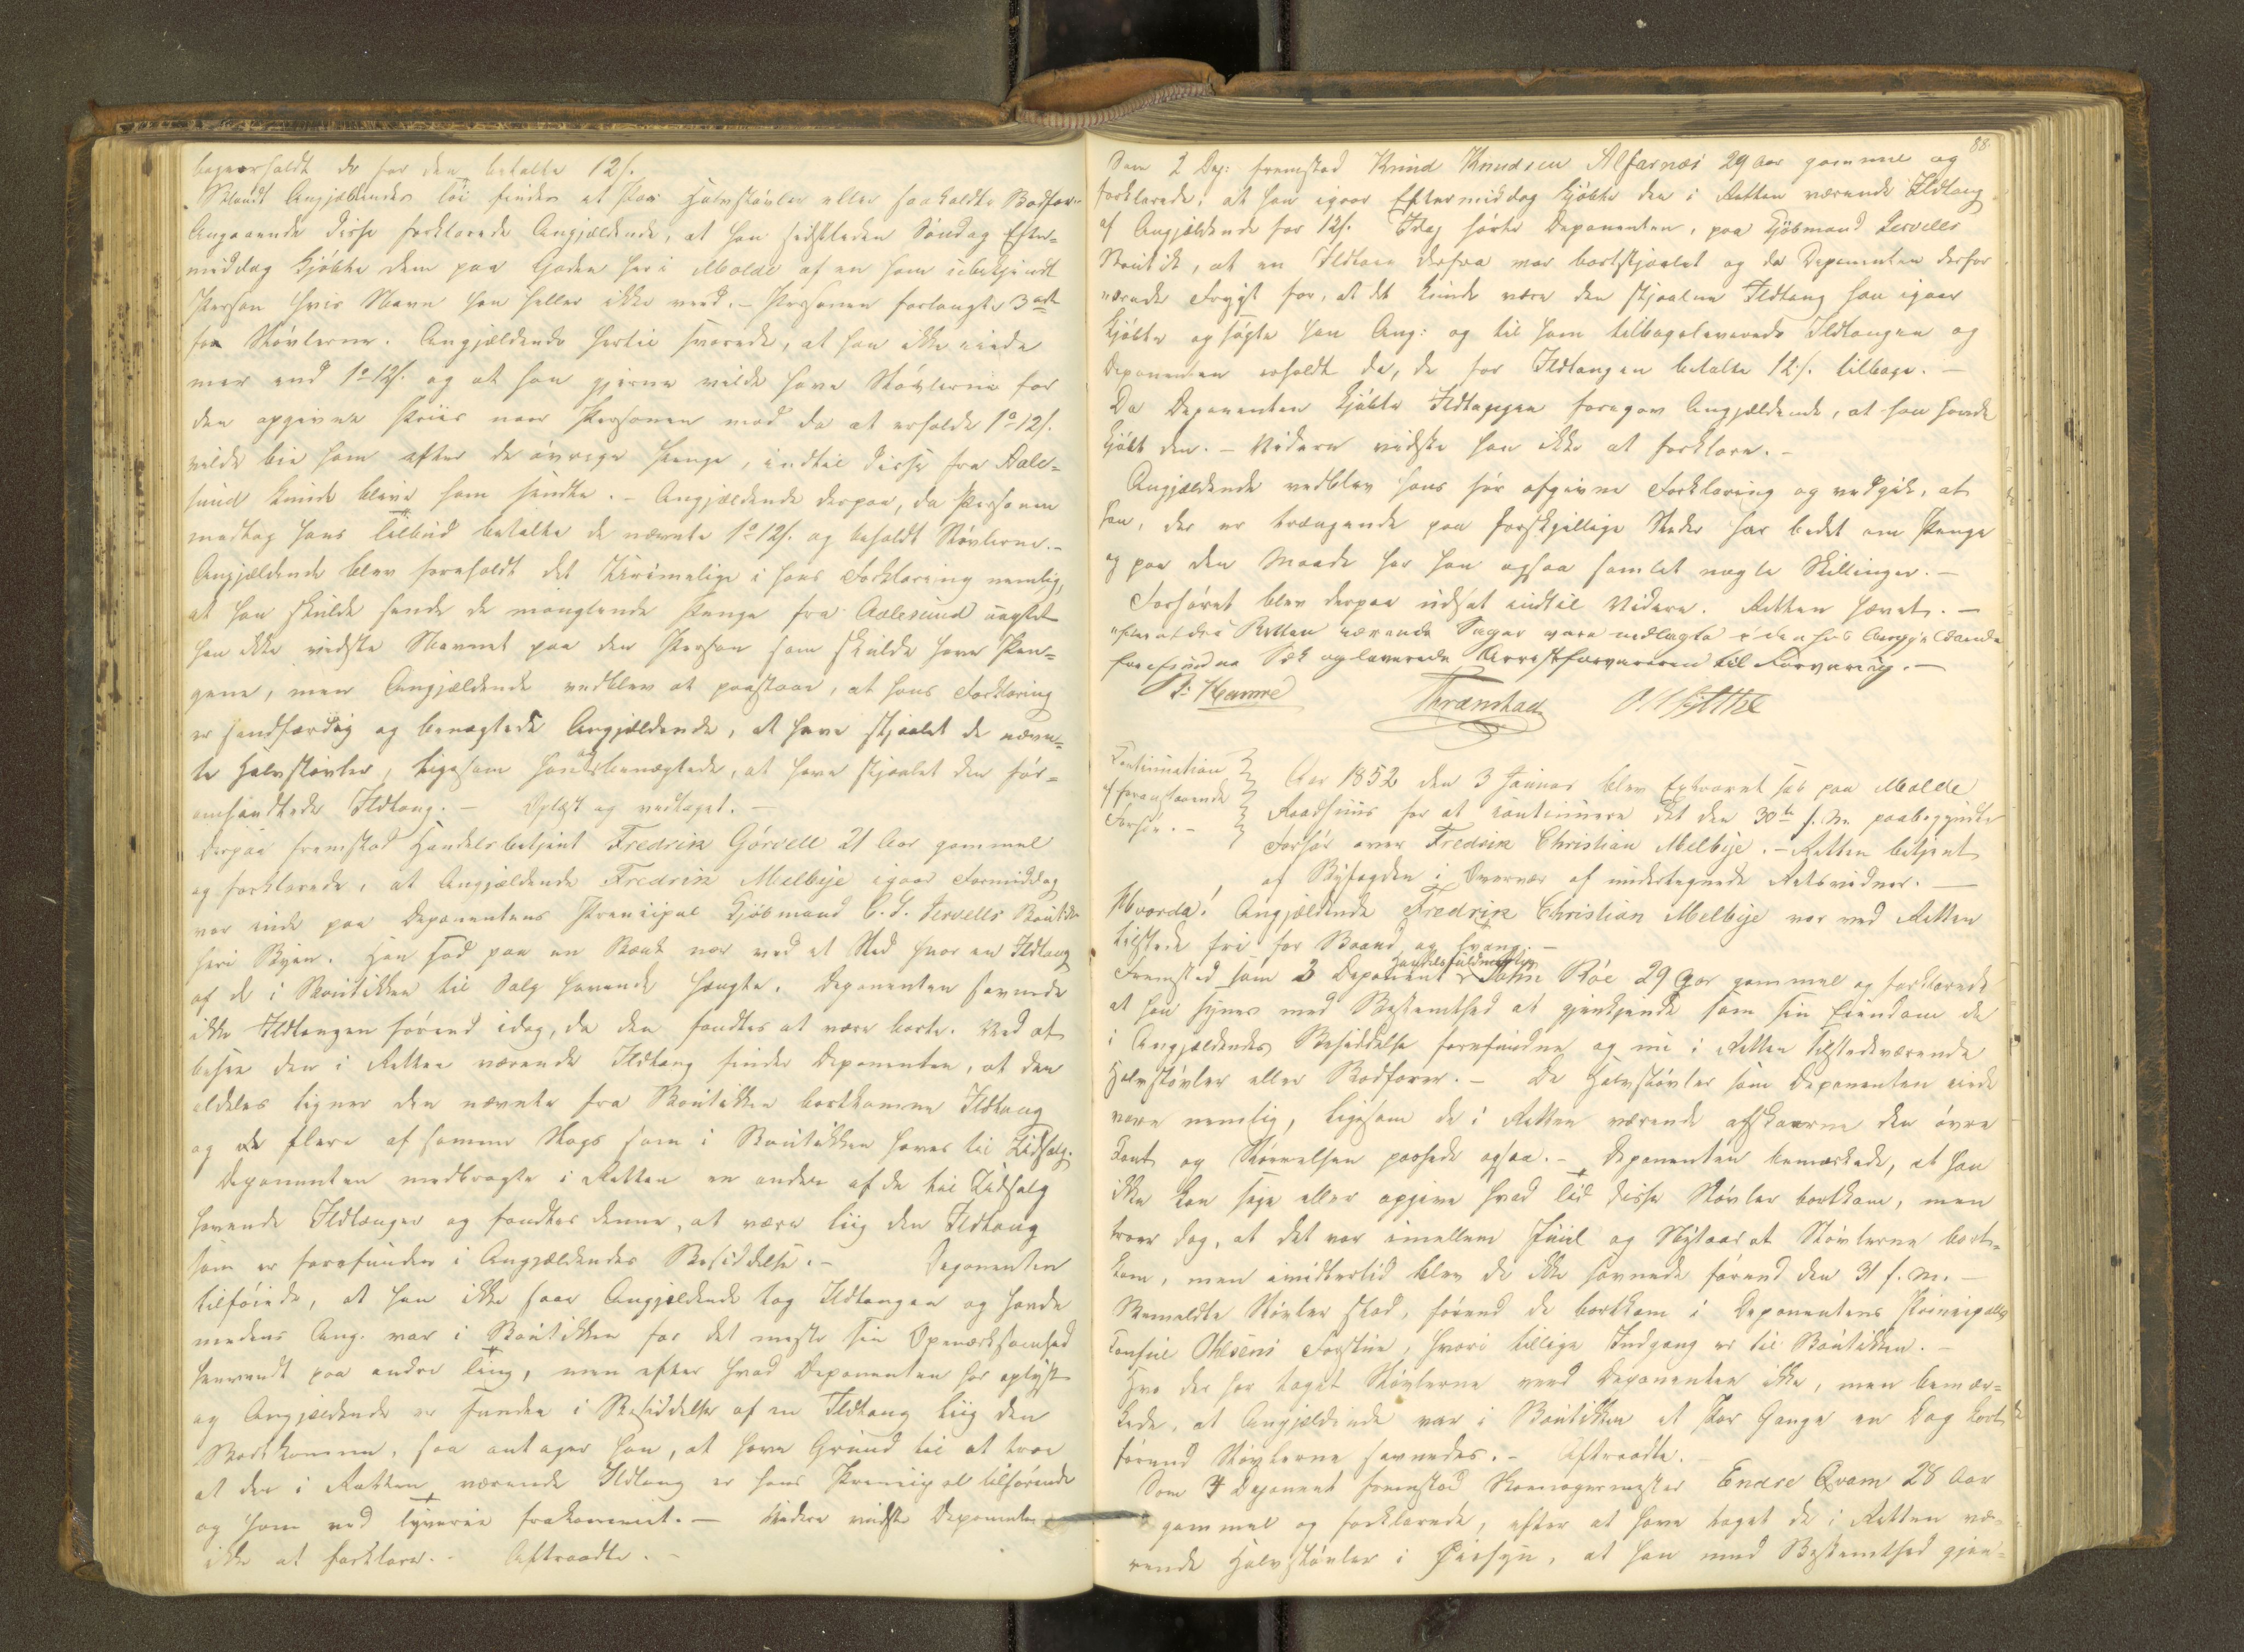 bageerholdt de for den betalte 12 s.
Blandt Angjældendes Töi findes et Par Halvstövler eller saakaldte Bodforer
Angaaende disse forklarede Angjældende, at han sidstleden Söndag Efter=
middag kjöbte dem paa Gaden her i Molde af en ham ubekjendt
Person hvis Navn han heller ikke veed. – Personen forlangte 3 ort
for Stövlerne. Angjældende hertil svarede, at han ikke eiede
mer end 1 o 12 s. og at han gjerne vilde have Stövlerne for
den opgivne Priis naar Personen mod da at erholde 1 o 12 s.
vilde bie ham efter de övrige Penge, indtil disse fra Aale=
sund kunde blive ham sendte. – Angjældende derpaa, da Personen
modtog hans Tilbud betalte de nævnte 1 o 12 s. og beholdt Stövlerne. –
Angjældende blev foreholdt det Urimelige i hans Forklaring nemlig,
at han skulde sende de manglende Penge fra Aalesund uagtet
han ikke vidste Navnet paa den Person som skulde have Pen=
gene, men Angjældende vedblev at paastaae, at hans Forklaring
er sandfærdig og benægtede Angjældende, at have stjaalet de nævn=
te Halvstövler, ligesom han benægtede, at have stjaalet den för=
omhandlede Ildtang. – Oplæst og vedtaget. –
Derpaa fremstod Handelsbetjent Fredrik Görvell 21 Aar gammel
og forklarede, at Angjældende Fredrik Melbye igaar Formiddag
var inde paa Deponentens Principal Kjöbmand C. J. Jervells Boutik
her i Byen. Han sad paa en Bænk nær ved et Sted hvor en Ildtang
af de i Boutikken til Salg havende hængte. Deponenten savnede
ikke Ildtangen förend idag, da den fandtes at være borte. Ved at
besee den i Retten værende Ildtang finder Deponenten, at den
aldeles ligner den nævnte fra Boutikken bortkomne Ildtang
og de flere af samme Slags som i Boutikken haves til Udsalg.
Deponenten medbragte i Retten en anden af de til Udsalg
havende Ildtænger og fandtes denne, at være liig den Ildtang
som er forefunden i Angjældendes Besiddelse. – Deponenten
tilföiede, at han ikke saae Angjældende tog Ildtangen og havde
medens Ang. var i Boutikken for det meste sin Opmærksomhed
henvendt paa andre Ting, men efter hvad Deponenten har oplyst
og Angjældende er funden i Besiddelse af en Ildtang liig den
Bortkomne, saa antager han, at have Grund til at troe
at den i Retten værende Ildtang er hans Principal tilhörende
og ham ved Tyverie frakommet. – Videre vidste Deponenten
ikke at forklare. – Aftraadte. –
88.
Som 2 Dep: fremstod Knud Knudsen Alfarnæs 29 Aar gammel og
forklarede, at han igaar Eftermiddag kjöbte den i Retten værende Ildtang
af Angjældende for 12 s. Idag hörte Deponenten, paa Kjöbmand Jervells
Boutik, at en Ildtang derfra var bortstjaalet og da Deponenten derfor
nærede Frygt for, at det kunde være den stjaalne Ildtang han igaar
kjöbte opsögte han Ang: og til ham tilbageleverede Ildtangen og
Deponenten erholdt da, de for Ildtangen betalte 12 s. tilbage. –
Da Deponenten kjöbte Ildtangen foregav Angjældende, at han havde
kjöbt den. – Videre vidste han ikke at forklare. –
Angjældende vedblev hans för afgivne Forklaring og vedgik, at
han, der er trængende paa forskjellige Steder har bedet om Penge
og paa den Maade har han ogsaa samlet nogle Skillinger. –
Forhöret blev derpaa udsat indtil Videre. Retten hævet. –
de i Retten værende Sager vare nedlagte i den hos Angjældende
forefundne Sæk og leverede Arrestforvareren til Forvaring. –
Thranstad
Continuation
af foranstaaende
Forhör. –
Aar 1852 den 3 Januar blev Extraret sat paa Molde
Raadhuus for at continuere det den 30te f. M. paabegyndte
Forhör over Fredrik Christian Melbye. – Retten betjent
af Byfogden i Overvær af undertegnede Retsvidner. –
Hvorda! Angjældende Fredrik Christian Melbye var ved Retten
tilstede fri for Baand og Tvang. –
Handelsfuldmægtig
Fremstod som 3 Deponent John Röe 29 Aar gammel og forklarede
at han synes med Bestemthed at gjenkjende som sin Eiendom de
i Angjældendes Besiddelse forefundne og nu i Retten tilstedeværende
Halvstövler eller Bodforer. – De Halvstövler som Deponenten eiede
vare nemlig, ligesom de i Retten værende afskaarne den övre
Kant og Störrelsen passede ogsaa. – Deponenten bemærkede, at han
ikke kan sige eller opgive hvad Tid disse Stövler bortkom, men
troer dog, at det var imellem Juul og Nytaar at Stövlerne bort=
kom, men imidlertid blev de ikke savnede förend den 31 f. M. –
Bemeldte Stövler stod, förend de bortkom i Deponentens Principals
Consul Ohlsens Forstue, hvori tillige Indgang er til Boutikken. –
Hvo der har taget Stövlerne veed Deponenten ikke, men bemær=
kede, at Angjældende var i Boutikken et Par Gange en Dag kort
förend Stövlerne savnedes. – Aftraadte. –
Som 4 Deponent fremstod Skomagermester Endre Qvam 28 Aar
gammel og forklarede, efter at have taget de i Retten væ=
rende Halvstövler i Öiesyn, at han med Bestemthed gjen=